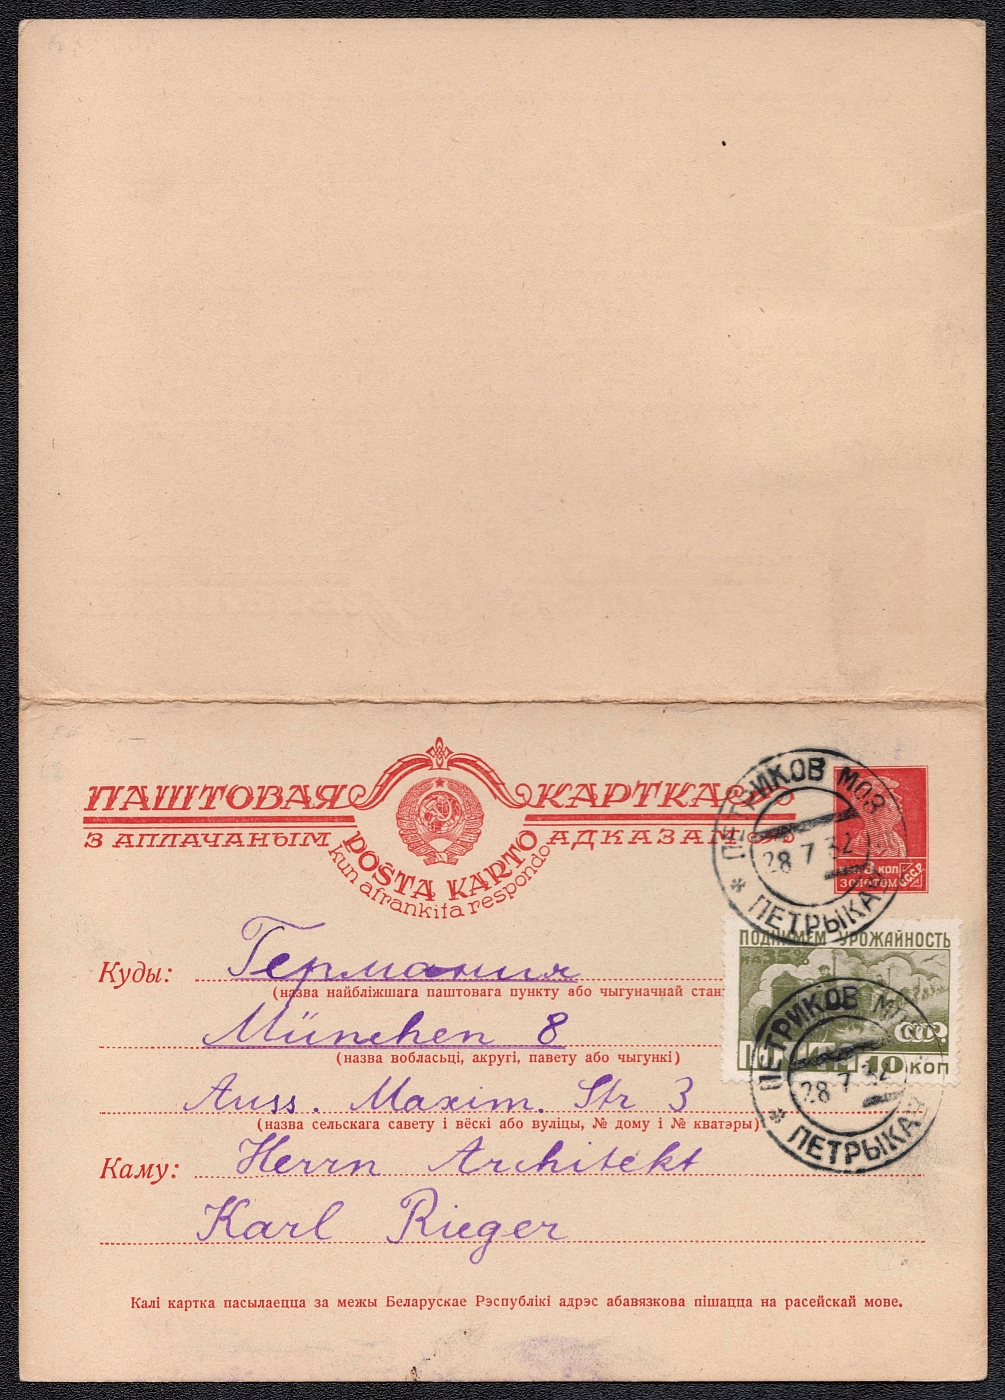 ПАШТОВАЯ КАРТКА
З АПЛАЧАНЫМ АДКАЗАМ
POŜTA KARTO
kun afrankita respondo
8 КОП
ЗОЛОТОМ
СССР
ПЕТРИКОВ МОЗ
28 7 32
* ПЕТРЫКАЎ
ПОДНИМЕМ УРОЖАЙНОСТЬ
НА 35%
СССР
10 КОП
ПЕТРИКОВ
28 7 32
* ПЕТРЫКАЎ
Куды: Германия
(назва найбліжшага паштовага пункту або чыгуначнай
München 8
(назва вобласьці, акругі, павету або чыгункі)
Auss. Maxim. Str 3
(назва сельскага савету і вёскі або вуліцы, № дому і № кватэры)
Каму: Herrn Architekt
Karl Rieger
Калі картка пасылаецца за межы Беларускае Рэспублікі адрэс абавязкова пішацца на расейскай мове.